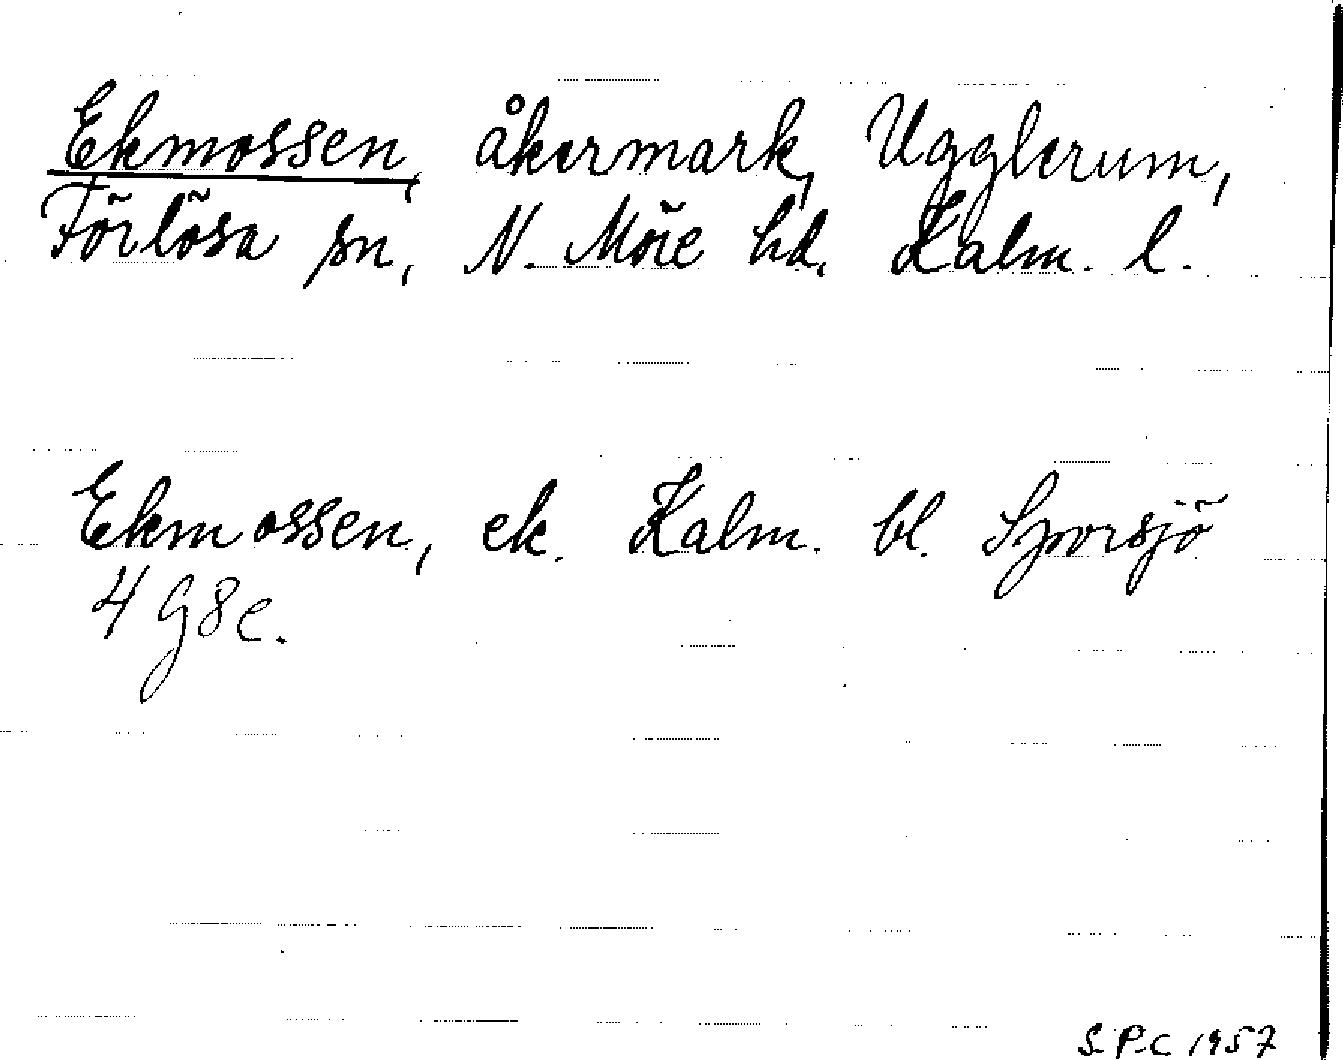 Ekmossen, åkermark, Ugglerum,
Förlösa sn, N. Möre hd, Kalm. l.
Ekmossen, ek. Kalm. bl. Sporsjö
4 G 8 e.
S.P.C 1957